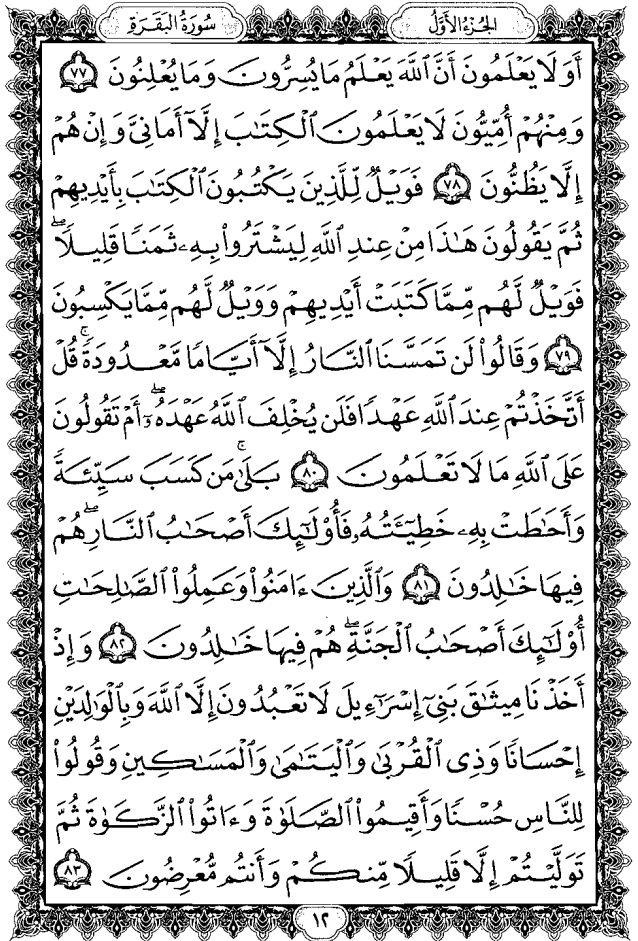 الجُزْءُ الأَوَّلُ
سُورَةُ البَقَرَةِ
أَوَلَا يَعْلَمُونَ أَنَّ ٱللَّهَ يَعْلَمُ مَا يُسِرُّونَ وَمَا يُعْلِنُونَ ٧٧
وَمِنْهُمْ أُمِّيُّونَ لَا يَعْلَمُونَ ٱلْكِتَٰبَ إِلَّآ أَمَانِىَّ وَإِنْ هُمْ
إِلَّا يَظُنُّونَ ٧٨ فَوَيْلٌ لِّلَّذِينَ يَكْتُبُونَ ٱلْكِتَٰبَ بِأَيْدِيهِمْ
ثُمَّ يَقُولُونَ هَٰذَا مِنْ عِندِ ٱللَّهِ لِيَشْتَرُوا۟ بِهِۦ ثَمَنًا قَلِيلًا ۖ
فَوَيْلٌ لَّهُم مِّمَّا كَتَبَتْ أَيْدِيهِمْ وَوَيْلٌ لَّهُم مِّمَّا يَكْسِبُونَ
٧٩ وَقَالُوا۟ لَن تَمَسَّنَا ٱلنَّارُ إِلَّآ أَيَّامًا مَّعْدُودَةً ۚ قُلْ
أَتَّخَذْتُمْ عِندَ ٱللَّهِ عَهْدًا فَلَن يُخْلِفَ ٱللَّهُ عَهْدَهُۥٓ ۖ أَمْ تَقُولُونَ
عَلَى ٱللَّهِ مَا لَا تَعْلَمُونَ ٨٠ بَلَىٰ ۚ مَن كَسَبَ سَيِّئَةً
وَأَحَٰطَتْ بِهِۦ خَطِيٓـَٔتُهُۥ فَأُو۟لَٰٓئِكَ أَصْحَٰبُ ٱلنَّارِ ۖ هُمْ
فِيهَا خَٰلِدُونَ ٨١ وَٱلَّذِينَ ءَامَنُوا۟ وَعَمِلُوا۟ ٱلصَّٰلِحَٰتِ
أُو۟لَٰٓئِكَ أَصْحَٰبُ ٱلْجَنَّةِ ۖ هُمْ فِيهَا خَٰلِدُونَ ٨٢ وَإِذْ
أَخَذْنَا مِيثَٰقَ بَنِىٓ إِسْرَٰٓءِيلَ لَا تَعْبُدُونَ إِلَّا ٱللَّهَ وَبِٱلْوَٰلِدَيْنِ
إِحْسَانًا وَذِى ٱلْقُرْبَىٰ وَٱلْيَتَٰمَىٰ وَٱلْمَسَٰكِينِ وَقُولُوا۟
لِلنَّاسِ حُسْنًا وَأَقِيمُوا۟ ٱلصَّلَوٰةَ وَءَاتُوا۟ ٱلزَّكَوٰةَ ثُمَّ
تَوَلَّيْتُمْ إِلَّا قَلِيلًا مِّنكُمْ وَأَنتُم مُّعْرِضُونَ ٨٣
١٢